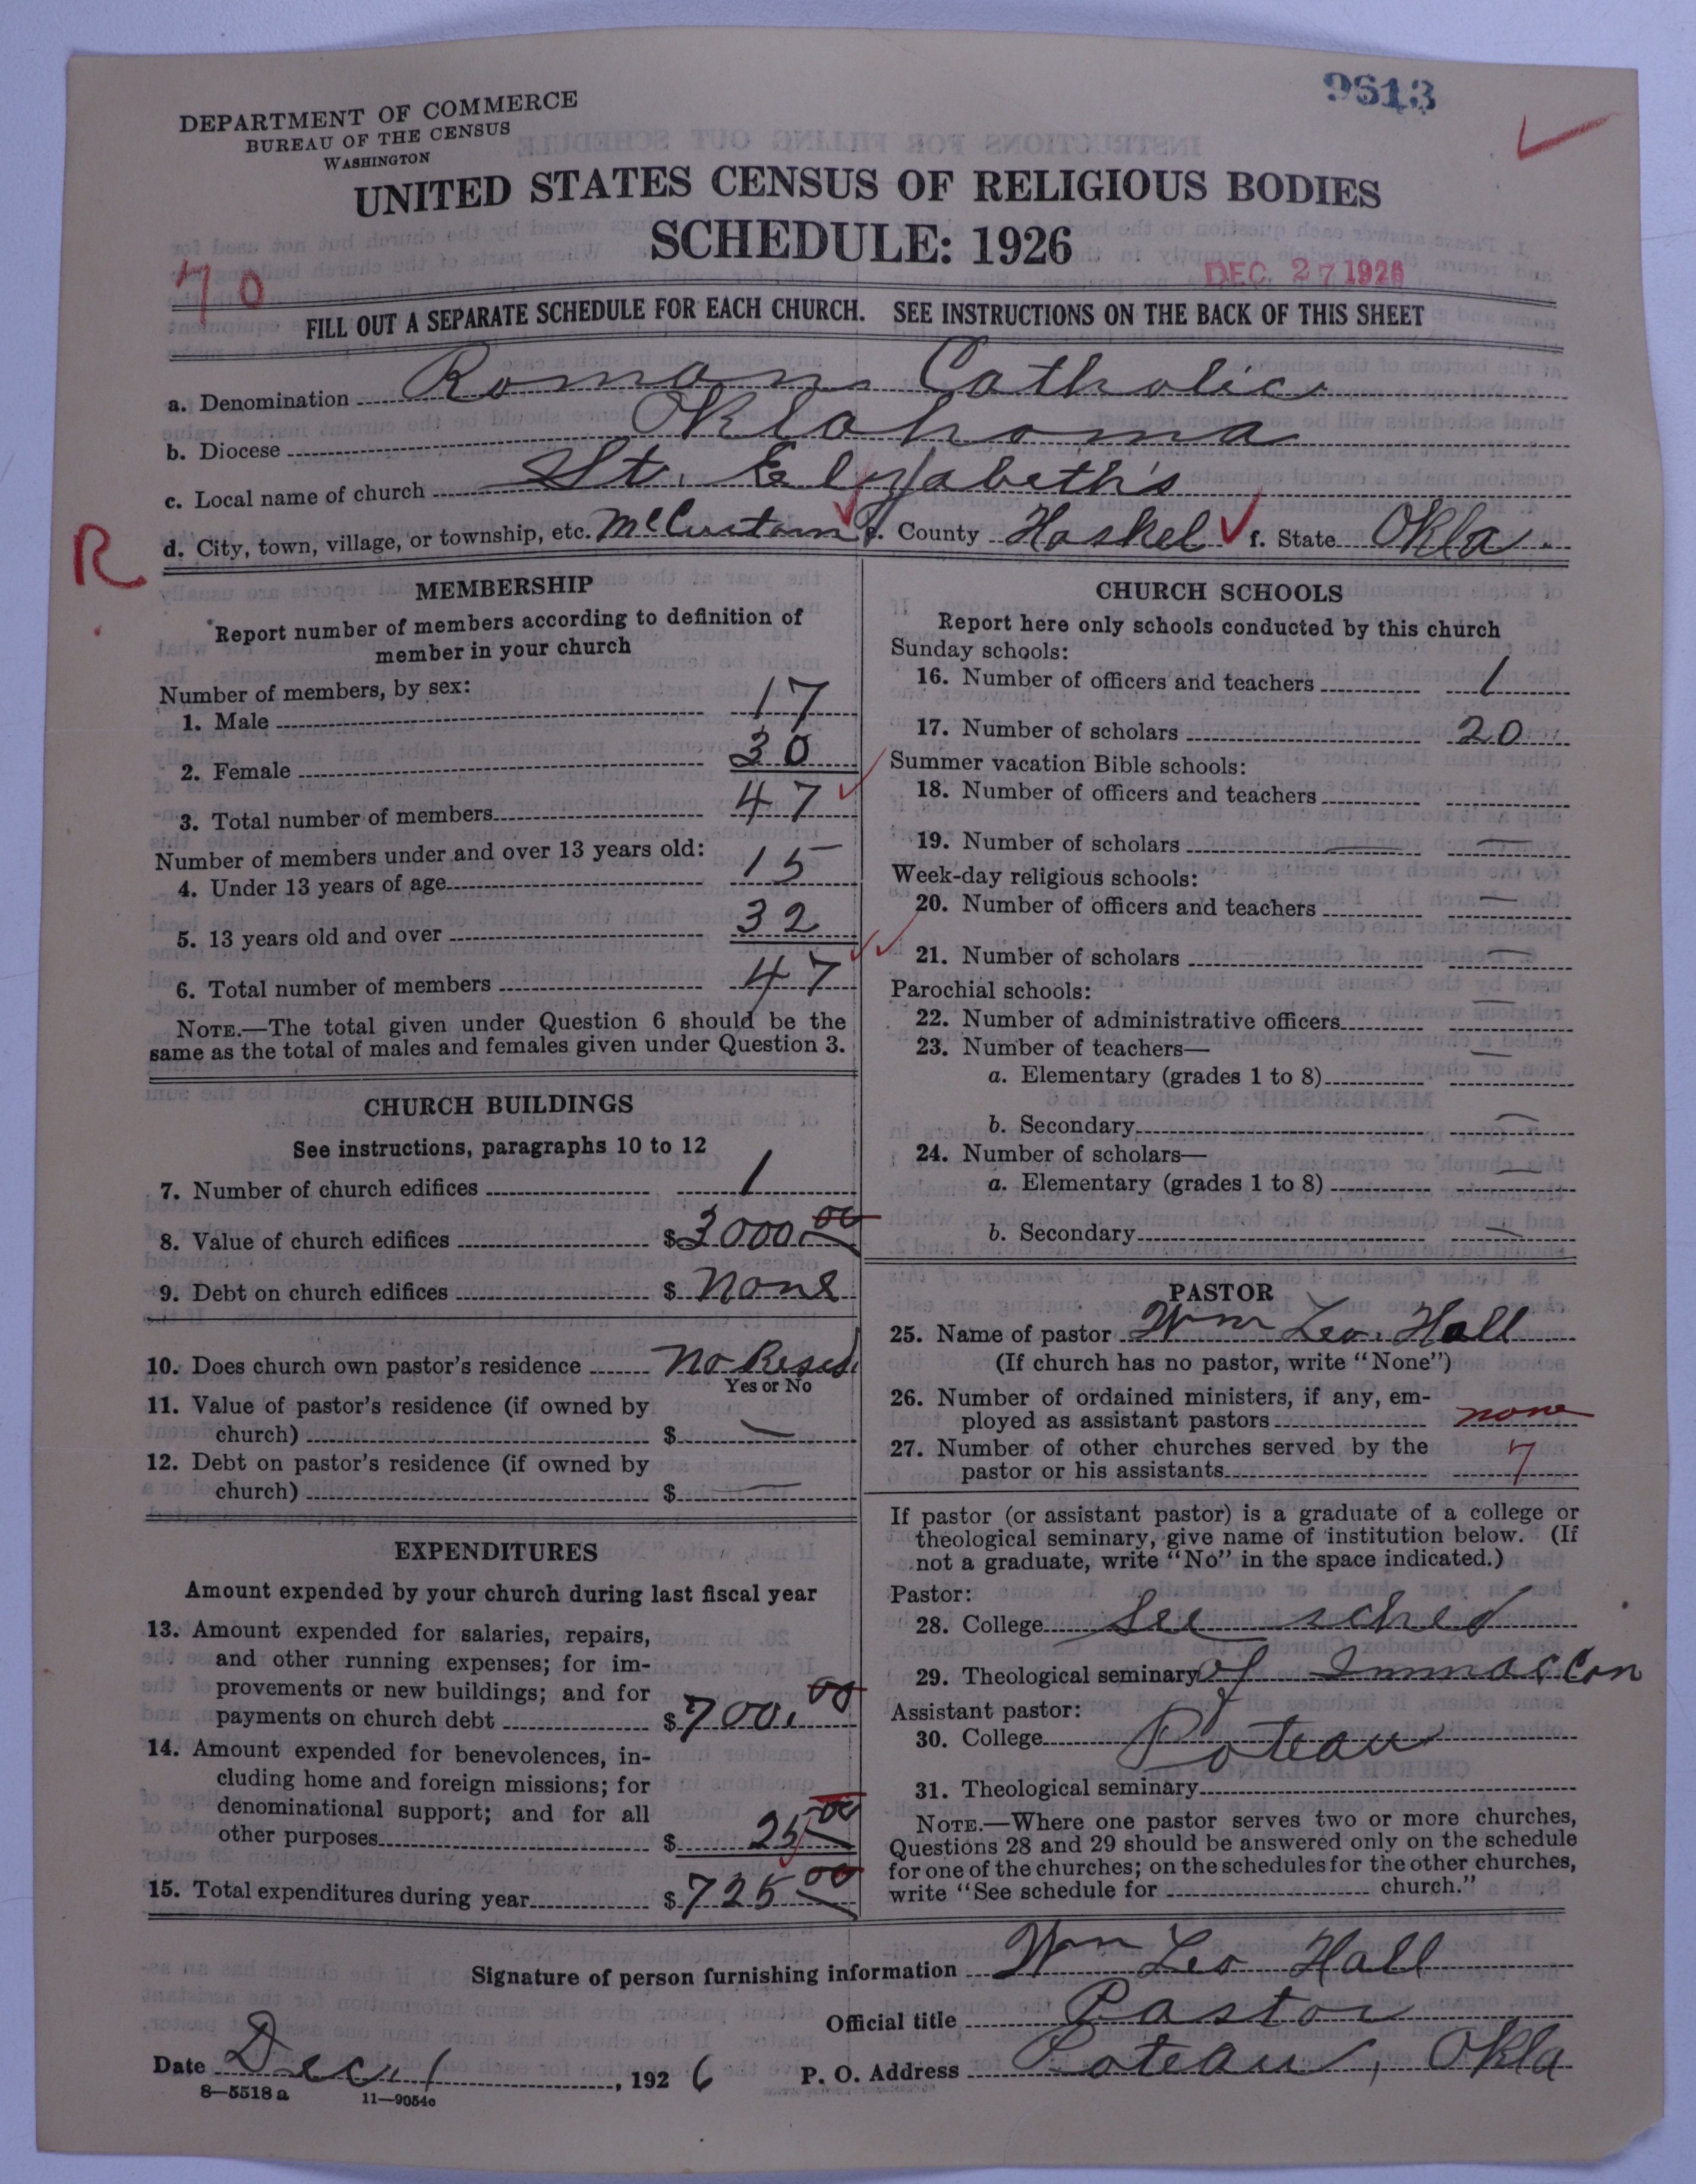 9613
DEPARTMENT OF COMMERCE
BUREAU OF THE CENSUS
WASHINGTON
UNITED STATES CENSUS OF RELIGIOUS BODIES
SCHEDULE: 1926
DEC. 27 1926
70
FILL OUT A SEPARATE SCHEDULE FOR EACH CHURCH. SEE INSTRUCTIONS ON THE BACK OF THIS SHEET
a. Denomination Roman Catholic
b. Diocese Oklahoma
c. Local name of church St. Elizabeth's
R
d. City, town, village, or township, etc. McCurtain e. County Haskel f. State Okla.
MEMBERSHIP
Report number of members according to definition of
member in your church
Number of members, by sex:
1. Male 17
2. Female 30
3. Total number of members 47
Number of members under and over 13 years old:
4. Under 13 years of age 15
5. 13 years old and over 32
6. Total number of members 47
NOTE.—The total given under Question 6 should be the
same as the total of males and females given under Question 3.
CHURCH BUILDINGS
See instructions, paragraphs 10 to 12
7. Number of church edifices 1
8. Value of church edifices $3000.00
9. Debt on church edifices $ none
10. Does church own pastor's residence No Resed
Yes or No
11. Value of pastor's residence (if owned by
church) $ —
12. Debt on pastor's residence (if owned by
church) $ —
EXPENDITURES
Amount expended by your church during last fiscal year
13. Amount expended for salaries, repairs,
and other running expenses; for im-
provements or new buildings; and for
payments on church debt $700.00
14. Amount expended for benevolences, in-
cluding home and foreign missions; for
denominational support; and for all
other purposes $ 25.00
15. Total expenditures during year $725.00
CHURCH SCHOOLS
Report here only schools conducted by this church
Sunday schools:
16. Number of officers and teachers 1
17. Number of scholars 20
Summer vacation Bible schools:
18. Number of officers and teachers
19. Number of scholars —
Week-day religious schools:
20. Number of officers and teachers —
21. Number of scholars —
Parochial schools:
22. Number of administrative officers —
23. Number of teachers—
a. Elementary (grades 1 to 8) —
b. Secondary —
24. Number of scholars—
a. Elementary (grades 1 to 8) —
b. Secondary —
PASTOR
25. Name of pastor Wm Leo. Hall
(If church has no pastor, write "None")
26. Number of ordained ministers, if any, em-
ployed as assistant pastors none
27. Number of other churches served by the
pastor or his assistants 7
If pastor (or assistant pastor) is a graduate of a college or
theological seminary, give name of institution below. (If
not a graduate, write "No" in the space indicated.)
Pastor:
28. College See sched
29. Theological seminary of Immac Con
Assistant pastor:
30. College Poteau
31. Theological seminary
NOTE.—Where one pastor serves two or more churches,
Questions 28 and 29 should be answered only on the schedule
for one of the churches; on the schedules for the other churches,
write "See schedule for church."
Signature of person furnishing information Wm Leo Hall
Official title Pastor
Date Dec. 1, 1926 P. O. Address Poteau, Okla
8—5518 a 11—9054c